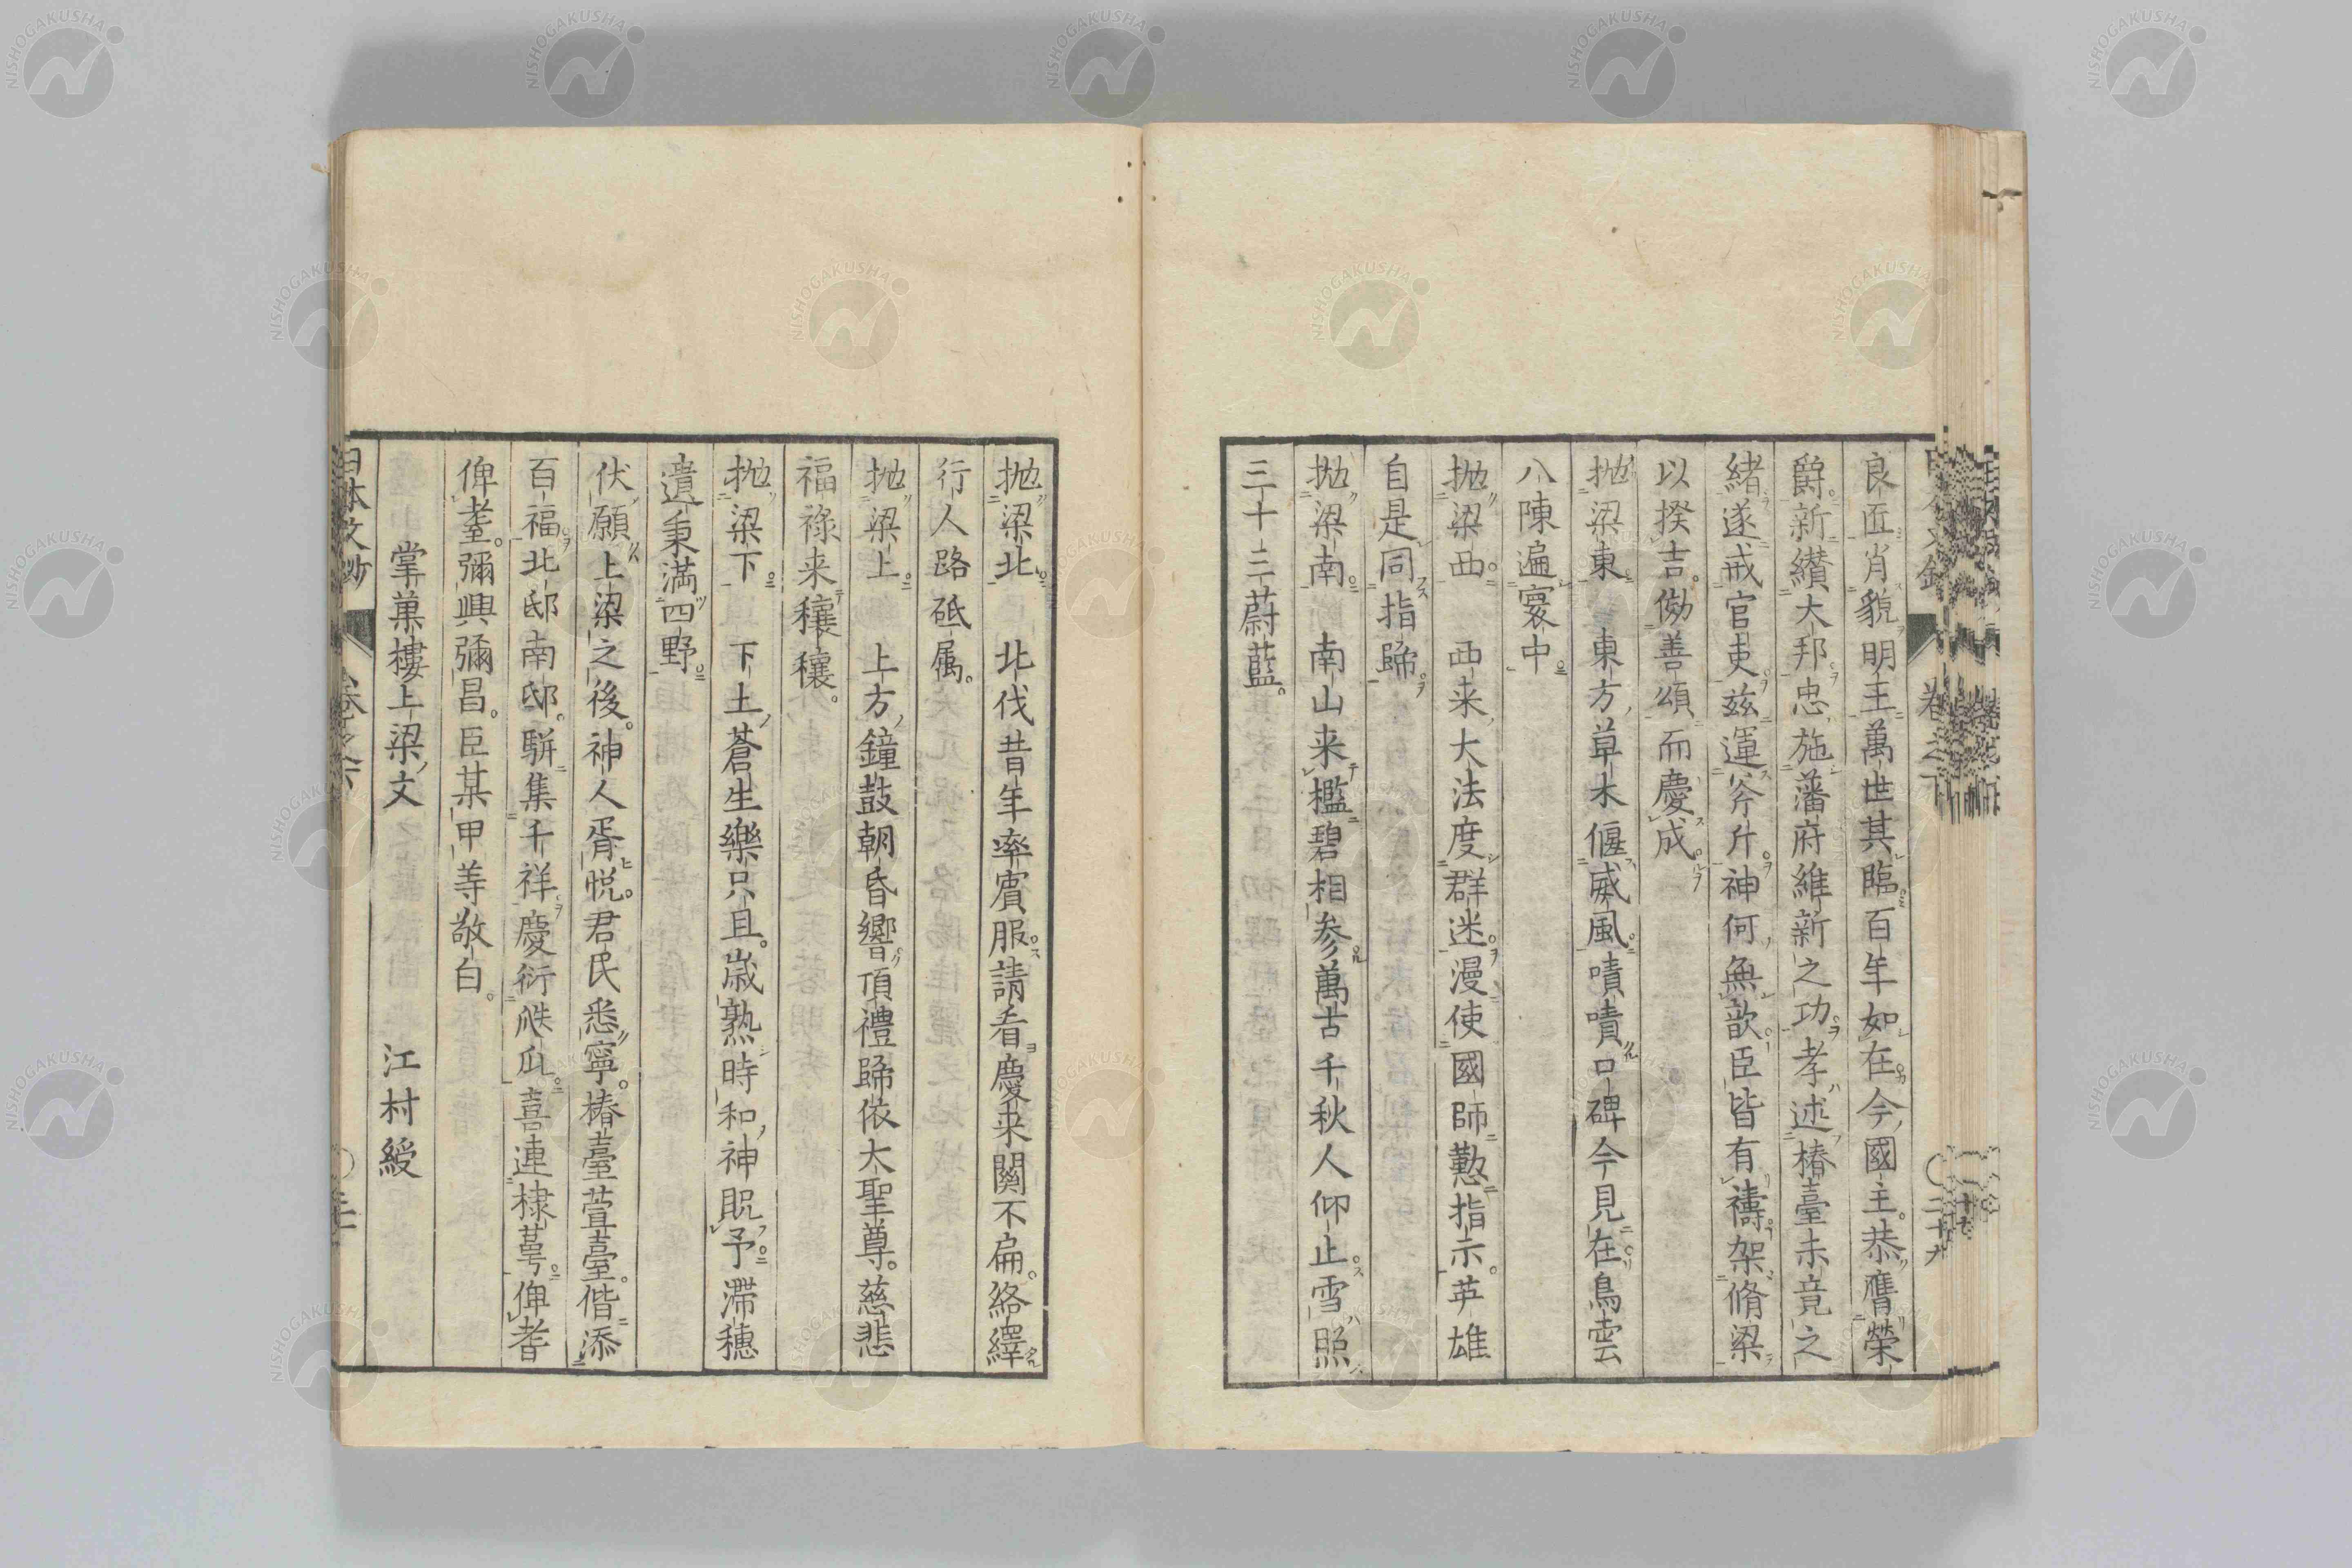 良匠肖貌明主萬世其臨百年如在今國主恭膺榮
爵新纉大邦忠施藩府維新之功孝述椿臺未竟之
緒遂戒官吏茲運斧斤神何無歆臣皆有禱架脩梁
以揆吉俲善頌而慶成
拋梁東　東方草木偃威風嘖嘖口碑今見在鳥雲
八陳遍寰中
拋梁西　西来大法度群迷漫使國師懃指示英雄
自是同指歸
拋梁南　南山来檻碧相参萬古千秋人仰止雪照
三十三蔚藍
拋梁北　北伐昔年率賓服請看慶来關不扁絡繹
行人路砥属
拋梁上　上方鐘鼓朝昏響頂禮歸依大聖尊慈悲
福祿来穰穰
拋梁下　下土蒼生樂只且歲熟時和神貺予滯穗
遺秉滿四野
伏願上梁之後神人胥悦君民悉寧椿臺萱臺偕添
百福北邸南邸駢集千祥慶衍瓞瓜喜連棣萼俾耆
俾耋彌興彌昌臣某甲等敬白
掌菓樓上梁文　江村綬
日本文鈔